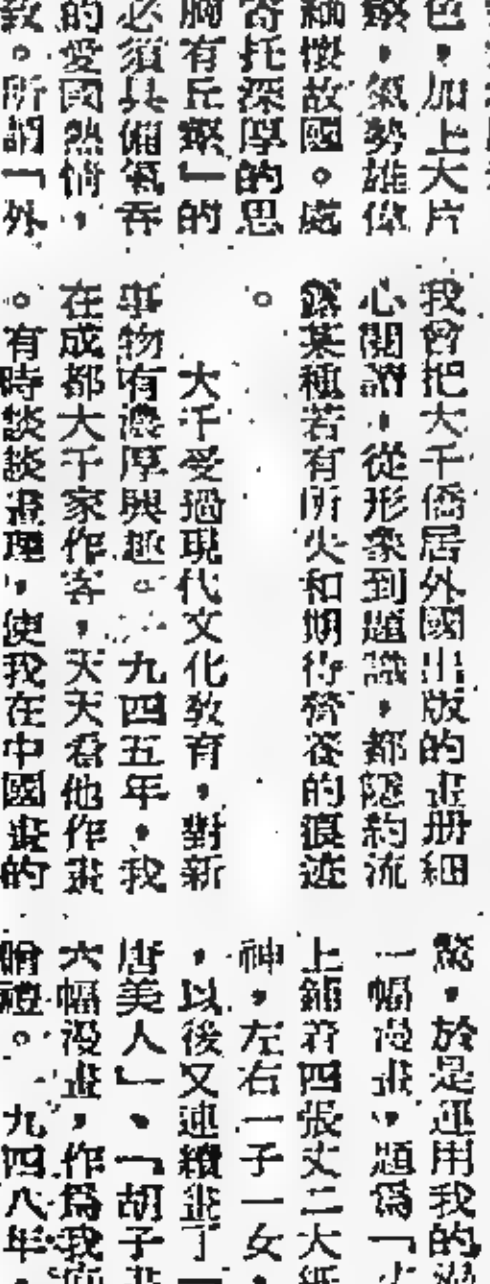 色，加上大片
繁，氣勢雄偉
緬懷故國。處
寄托深厚的思
胸有丘壑」的
必須具備氣吞
的愛國熱情，
致。所謂「外
我曾把大千僑居外國出版的畫册細
心閱讀，從形象到題識，都隱約流
露某種若有所失和期待
的痕迹
。
大千受過現代文化敎育，對新
事物有濃厚興趣。一九四五年，我
在成都大千家作客，天天看他作畫
。有時談談畫理，使我在中國畫的
驚，於是運用我的
一幅漫畫，題爲「
上鋪着四張丈二大紙
神，左右一子一女，
，以後又連續畫了一
唐美人」、「胡子
六幅漫畫，作爲我
贈禮。一九四八年，